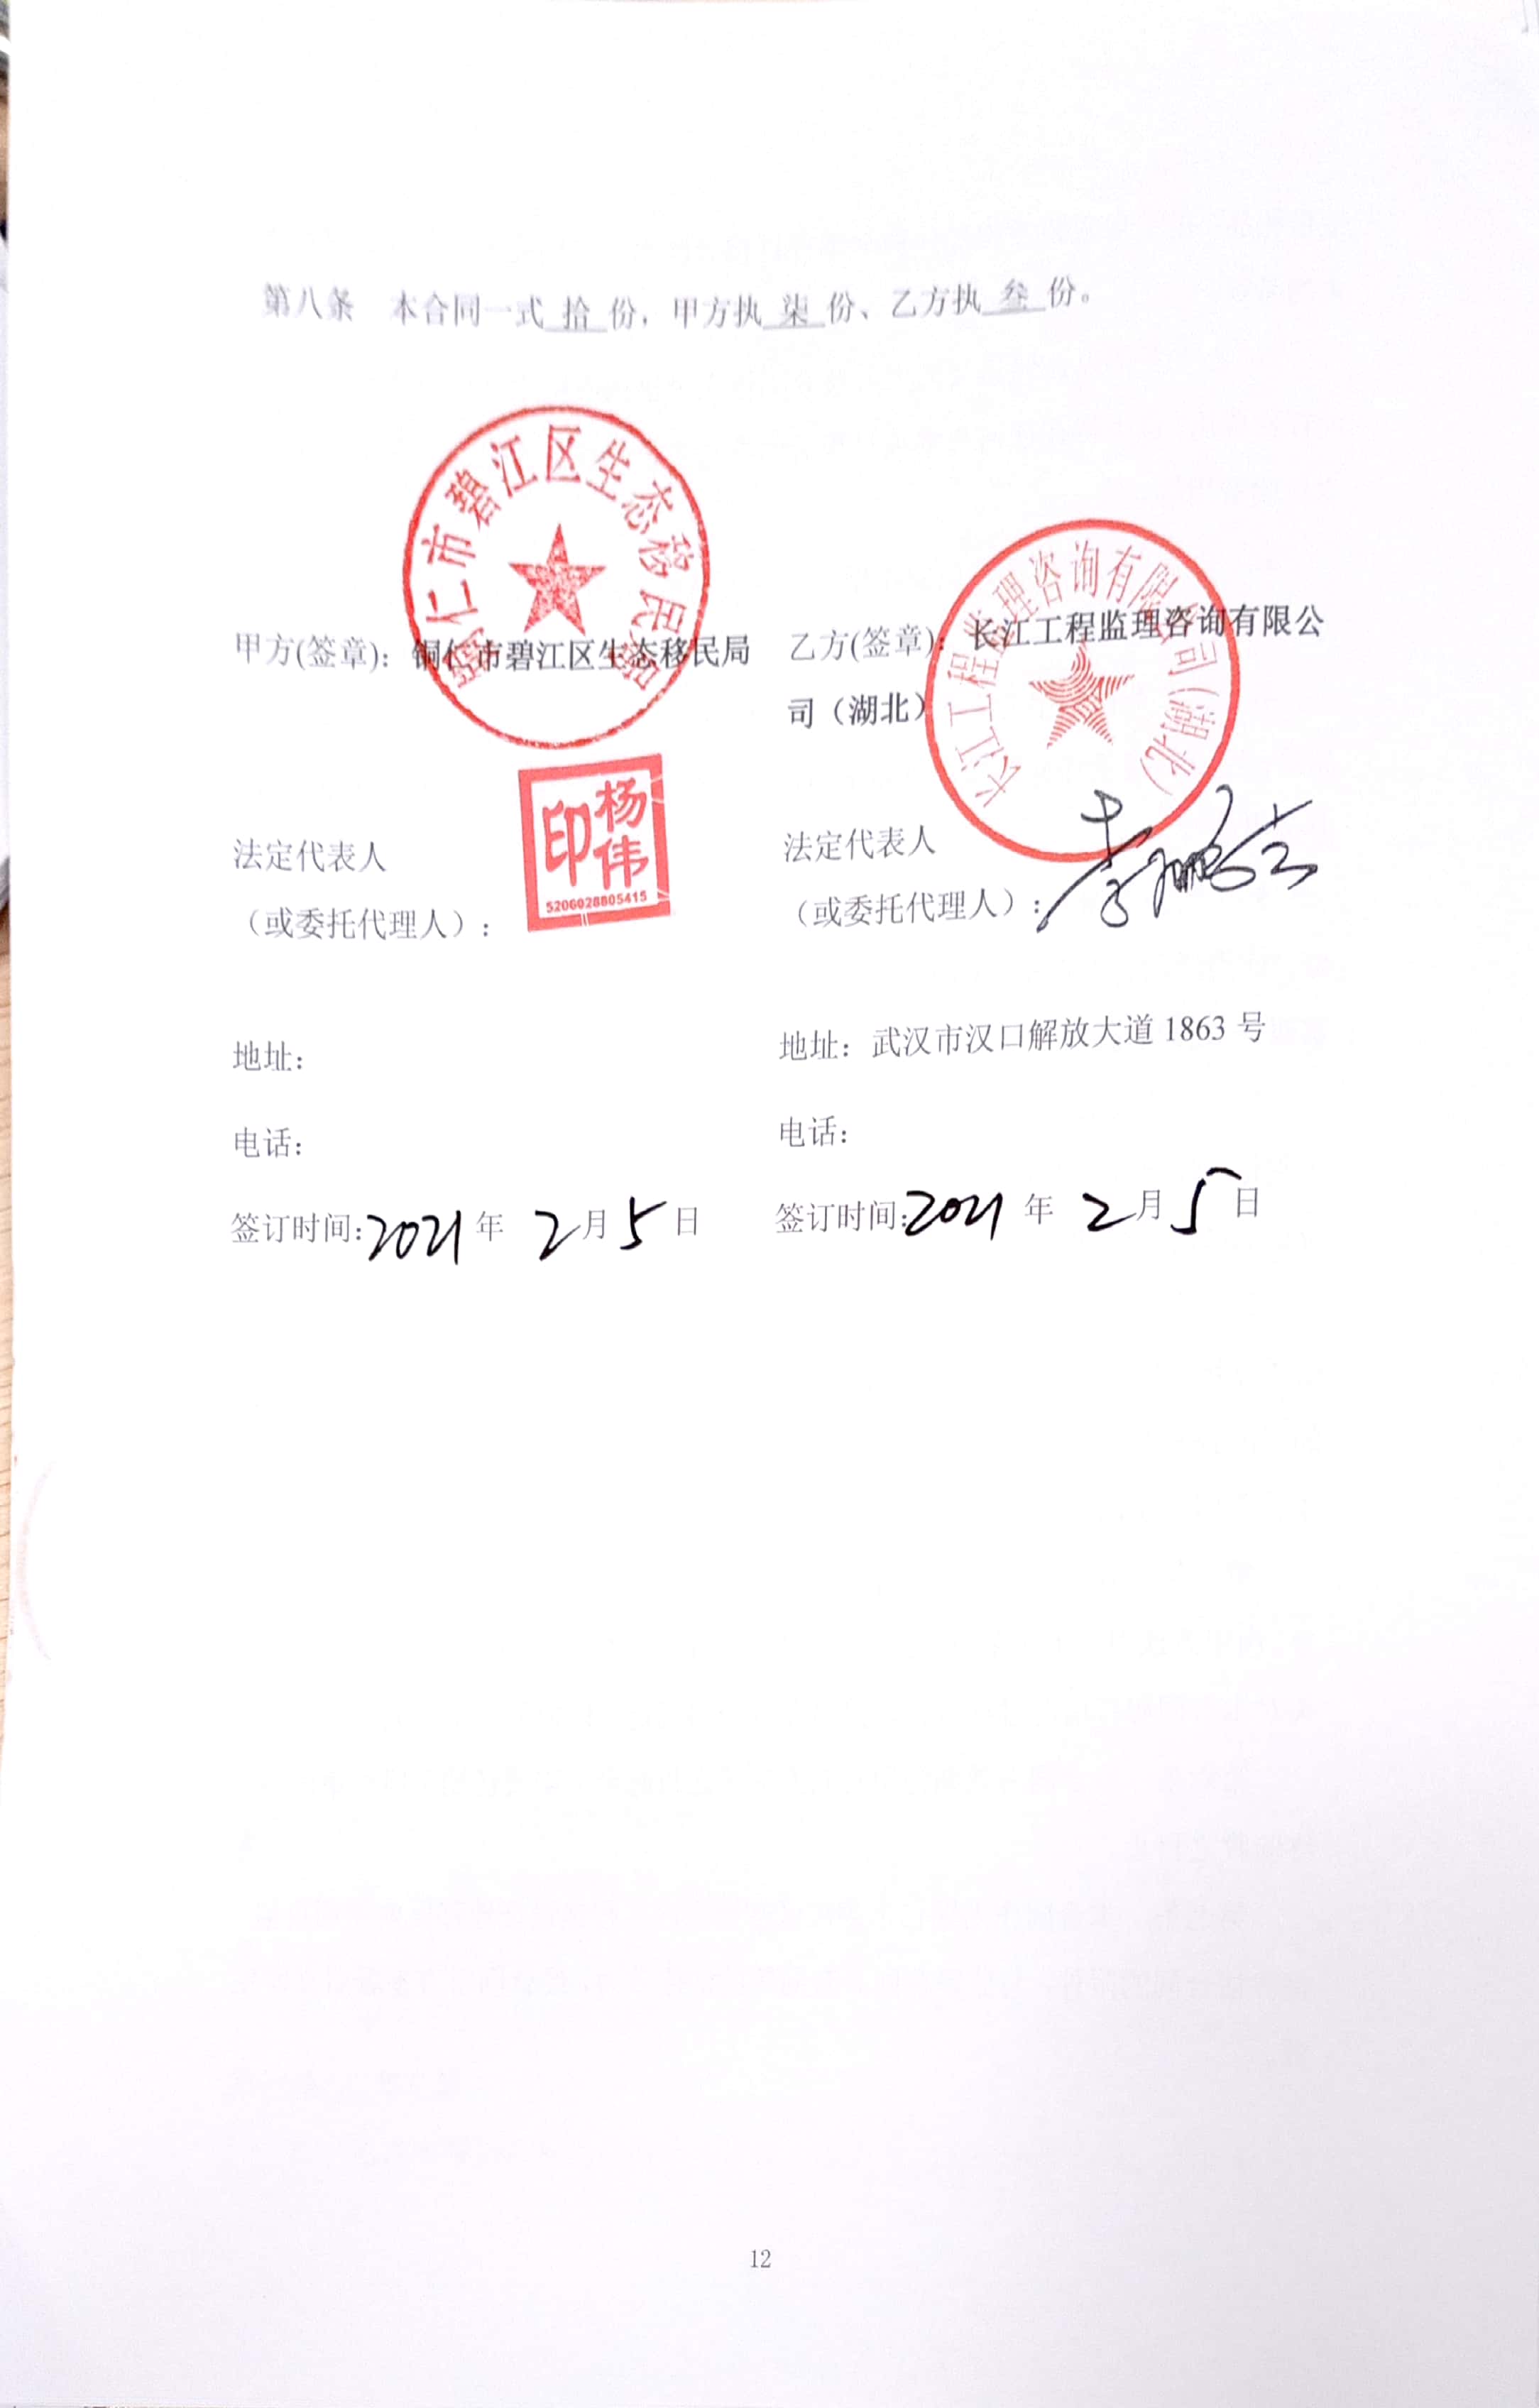 第八条 本合同一式 拾 份，甲方执 柒 份、乙方执 叁 份。
铜仁市碧江区生态移民局
长江工程监理咨询有限公司(湖北)
甲方(签章)：铜仁市碧江区生态移民局
乙方(签章)：长江工程监理咨询有限公
司（湖北）
法定代表人
（或委托代理人）：
杨伟印
5206028805415
法定代表人
（或委托代理人）：
地址：
地址：武汉市汉口解放大道 1863 号
电话：
电话：
签订时间：2021 年 2 月 5 日
签订时间：2021 年 2 月 5 日
12